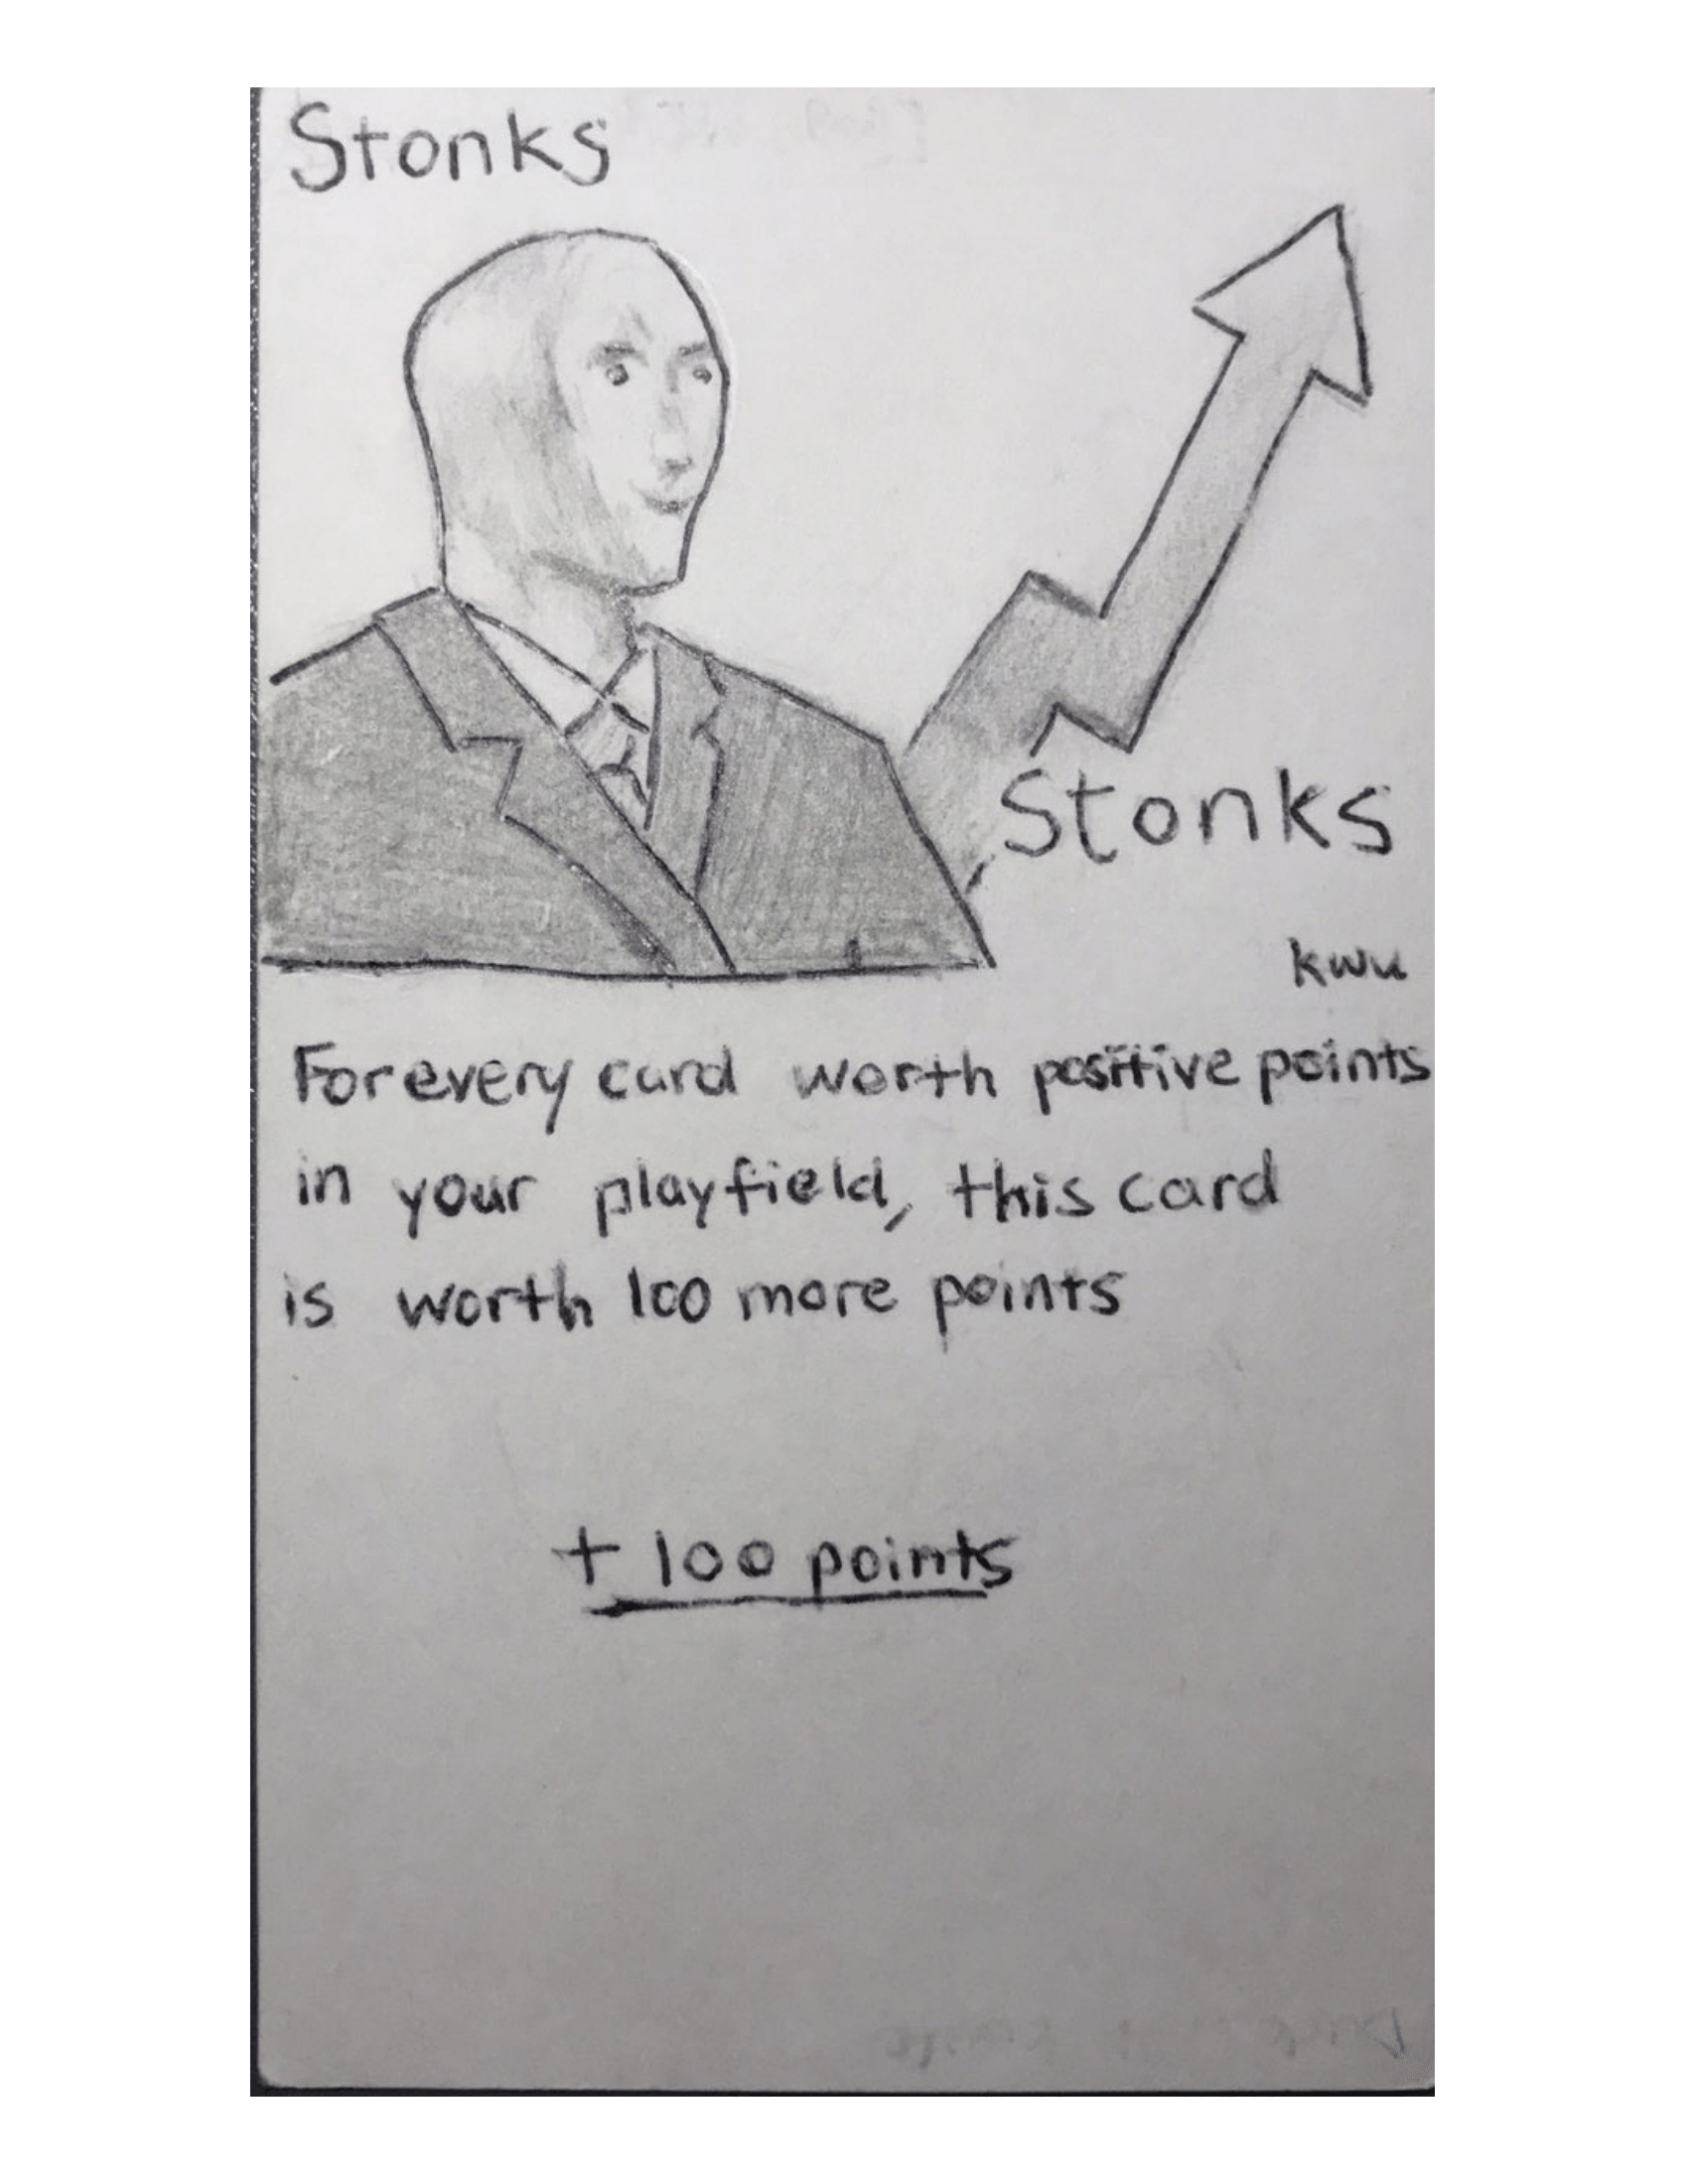 Stonks
Stonks
kwu
For every card worth positive points
in your playfield, this card
is worth 100 more points
+ 100 points